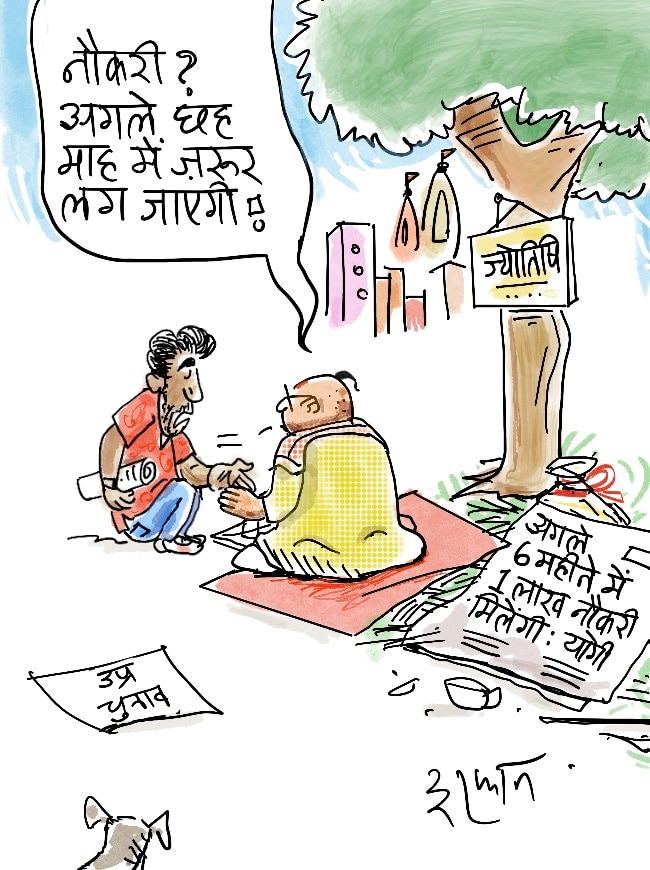 नौकरी?
अगले छह
माह में ज़रूर
लग जाएगी!
ज्योतिषि
अगले
6 महीने में
1 लाख नौकरी
मिलेगी: योगी
उप्र
चुनाव
इरफ़ान